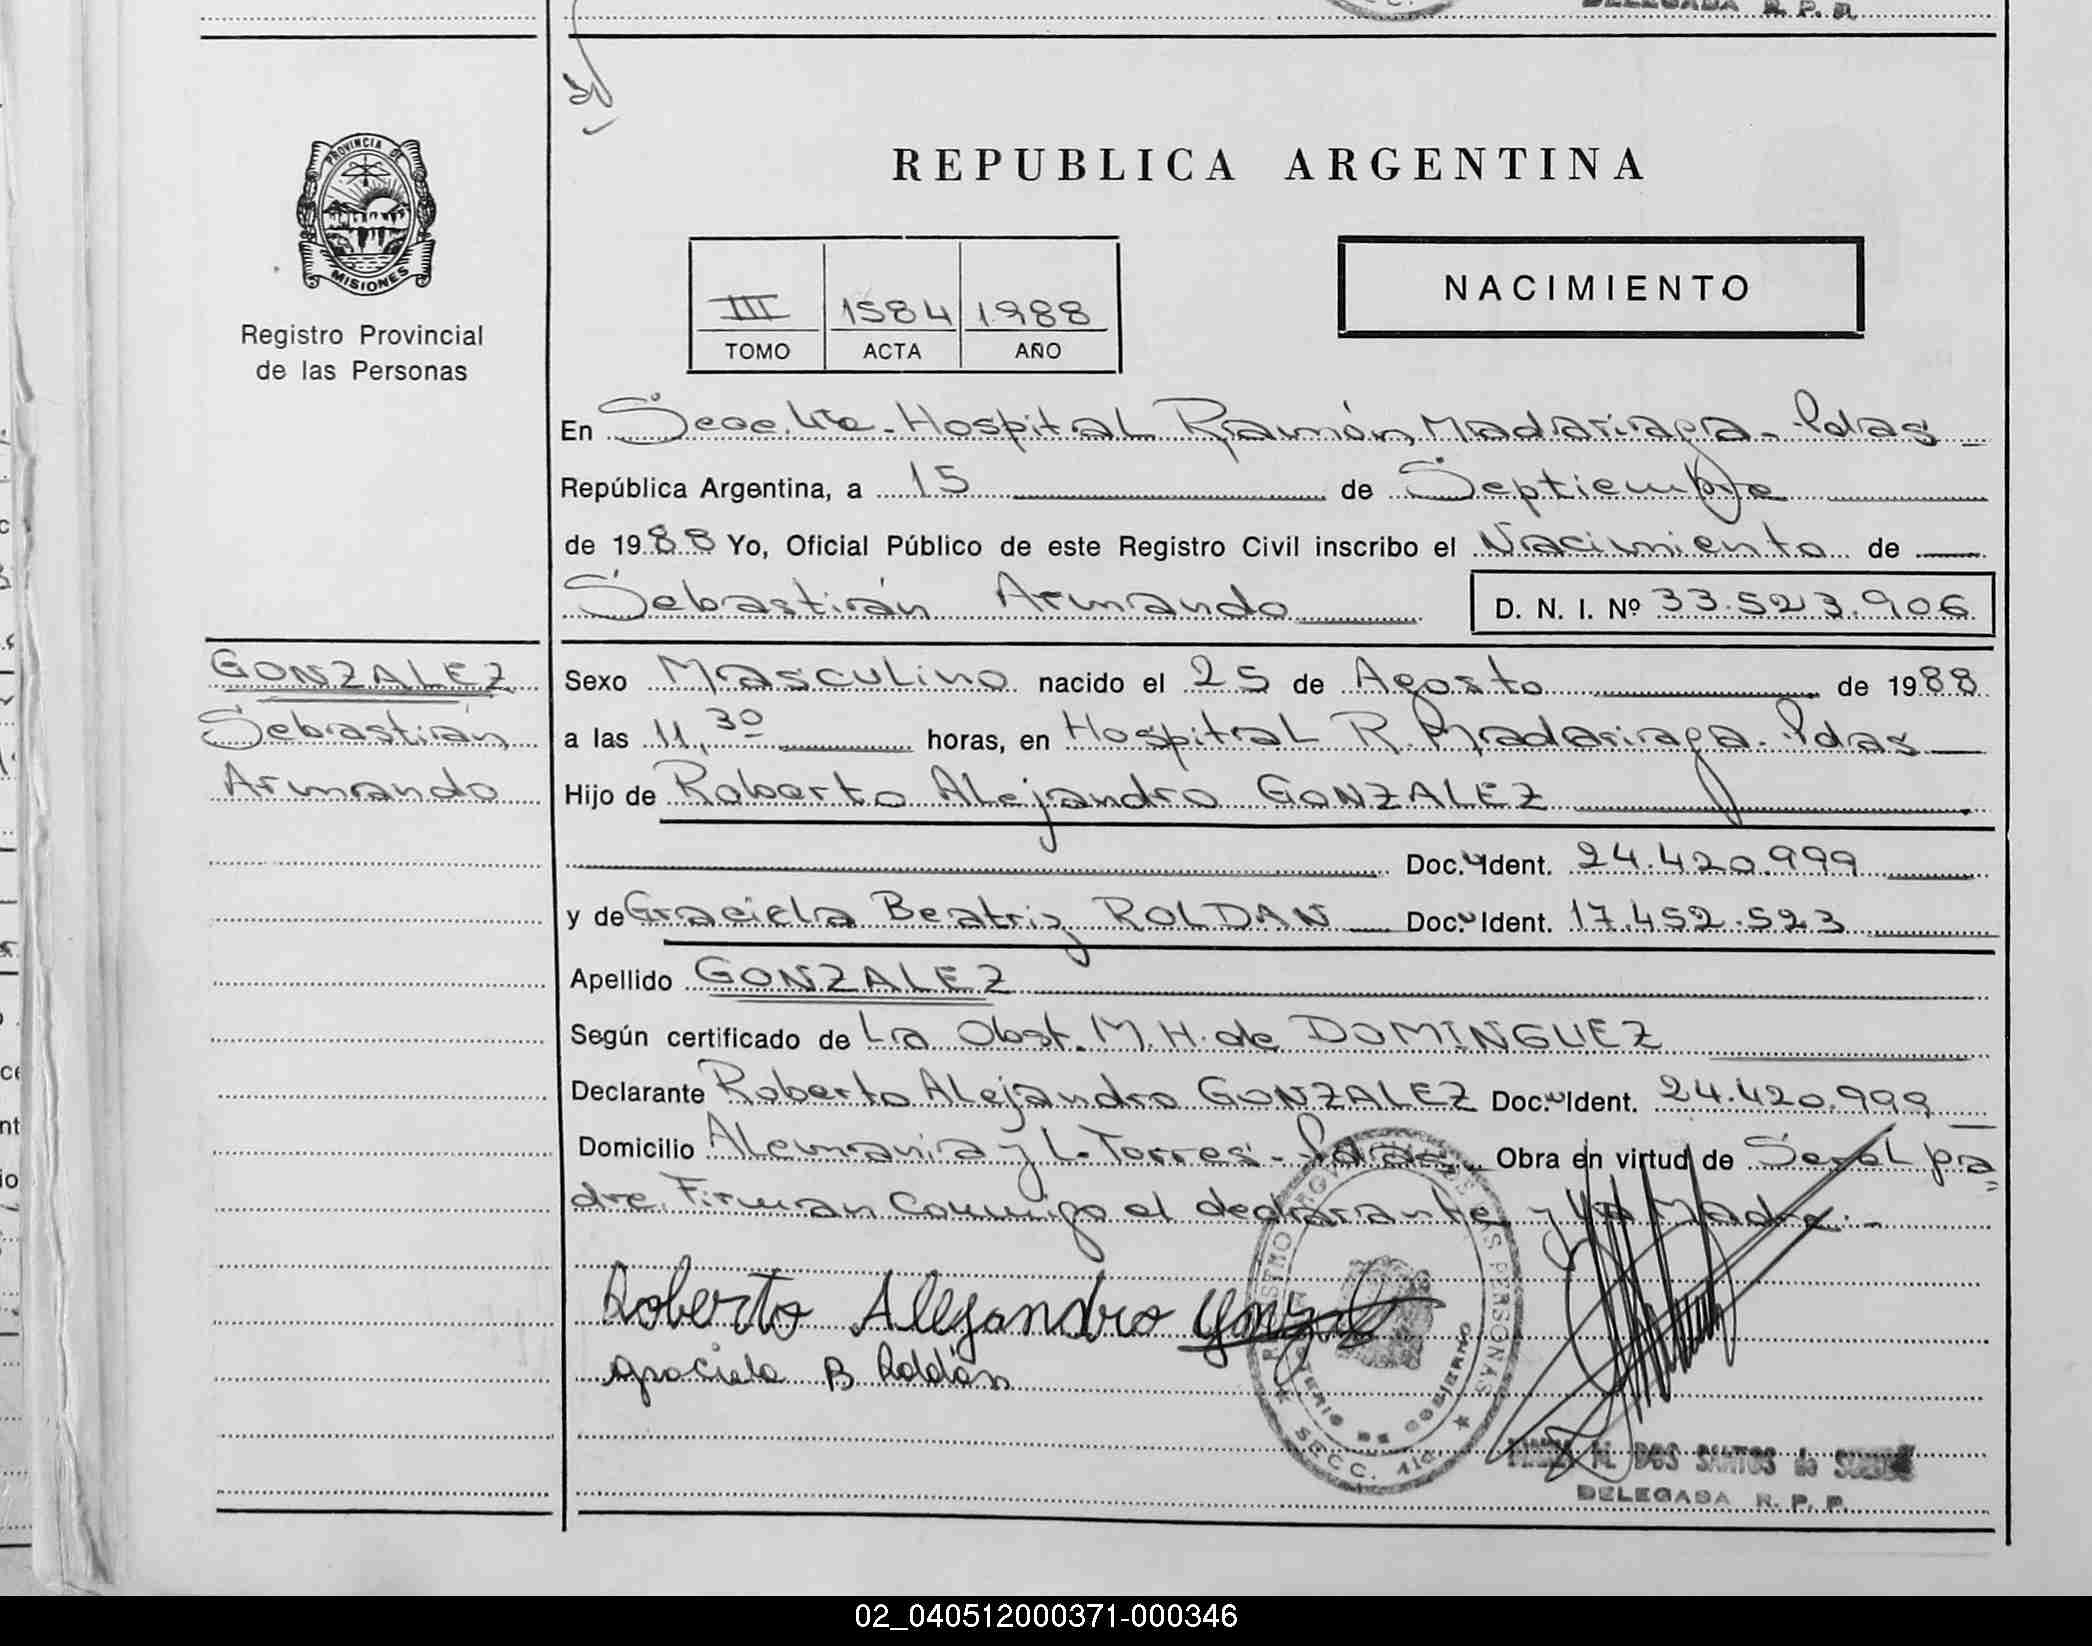 DELEGADA R. P. P.
PROVINCIA DE
MISIONES
Registro Provincial
de las Personas
REPUBLICA ARGENTINA
NACIMIENTO
III 1584 1988
TOMO ACTA AÑO
En Secc. 4ta - Hospital Ramón Madariaga - Pdas
República Argentina, a 15 de Septiembre
de 1988 Yo, Oficial Público de este Registro Civil inscribo el Nacimiento de
Sebastián Armando D. N. I. Nº 33.523.906
GONZALEZ
Sebastián
Armando
Sexo Masculino nacido el 25 de Agosto de 1988
a las 11,30 horas, en Hospital R. Madariaga - Pdas
Hijo de Roberto Alejandro GONZALEZ
Doc. Ident. 24.420.999
y de Graciela Beatriz ROLDAN Doc. Ident. 17.452.523
Apellido GONZALEZ
Según certificado de La Obst. M. H. de DOMINGUEZ
Declarante Roberto Alejandro GONZALEZ Doc. Ident. 24.420.999
Domicilio Alemania y L. Torres - Pdas Obra en virtud de Ser el pa=
dre. Firman Conmigo el declarante y la Madre.-
Roberto Alejandro Gonzalez
Graciela B Roldán
REGISTRO PROVINCIAL DE LAS PERSONAS
MINISTERIO DE GOBIERNO
SECC. 4ta.
M. DOS SANTOS de
DELEGADA R. P. P.
02_040512000371-000346